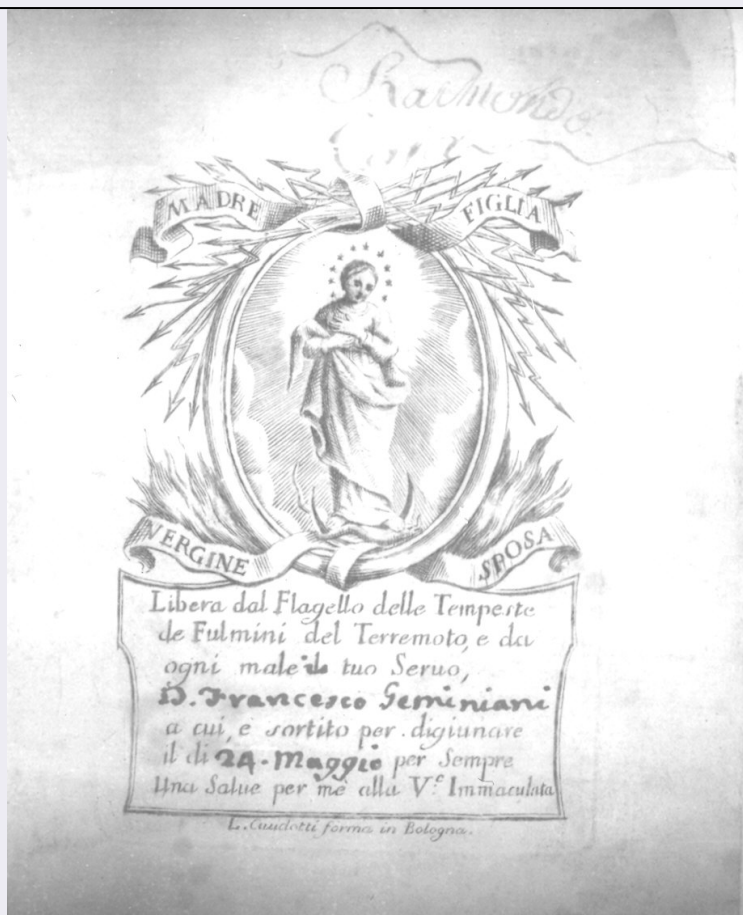 Raimondo
MADRE FIGLIA
VERGINE SPOSA
Libera dal Flagello delle Tempeste
de Fulmini del Terremoto, e da
ogni male il tuo Seruo,
D. Francesco Geminiani
a cui, e sortito per digiunare
il di 24. Maggio per Sempre
Una Salue per me alla V.e Immaculata
forma in Bologna.